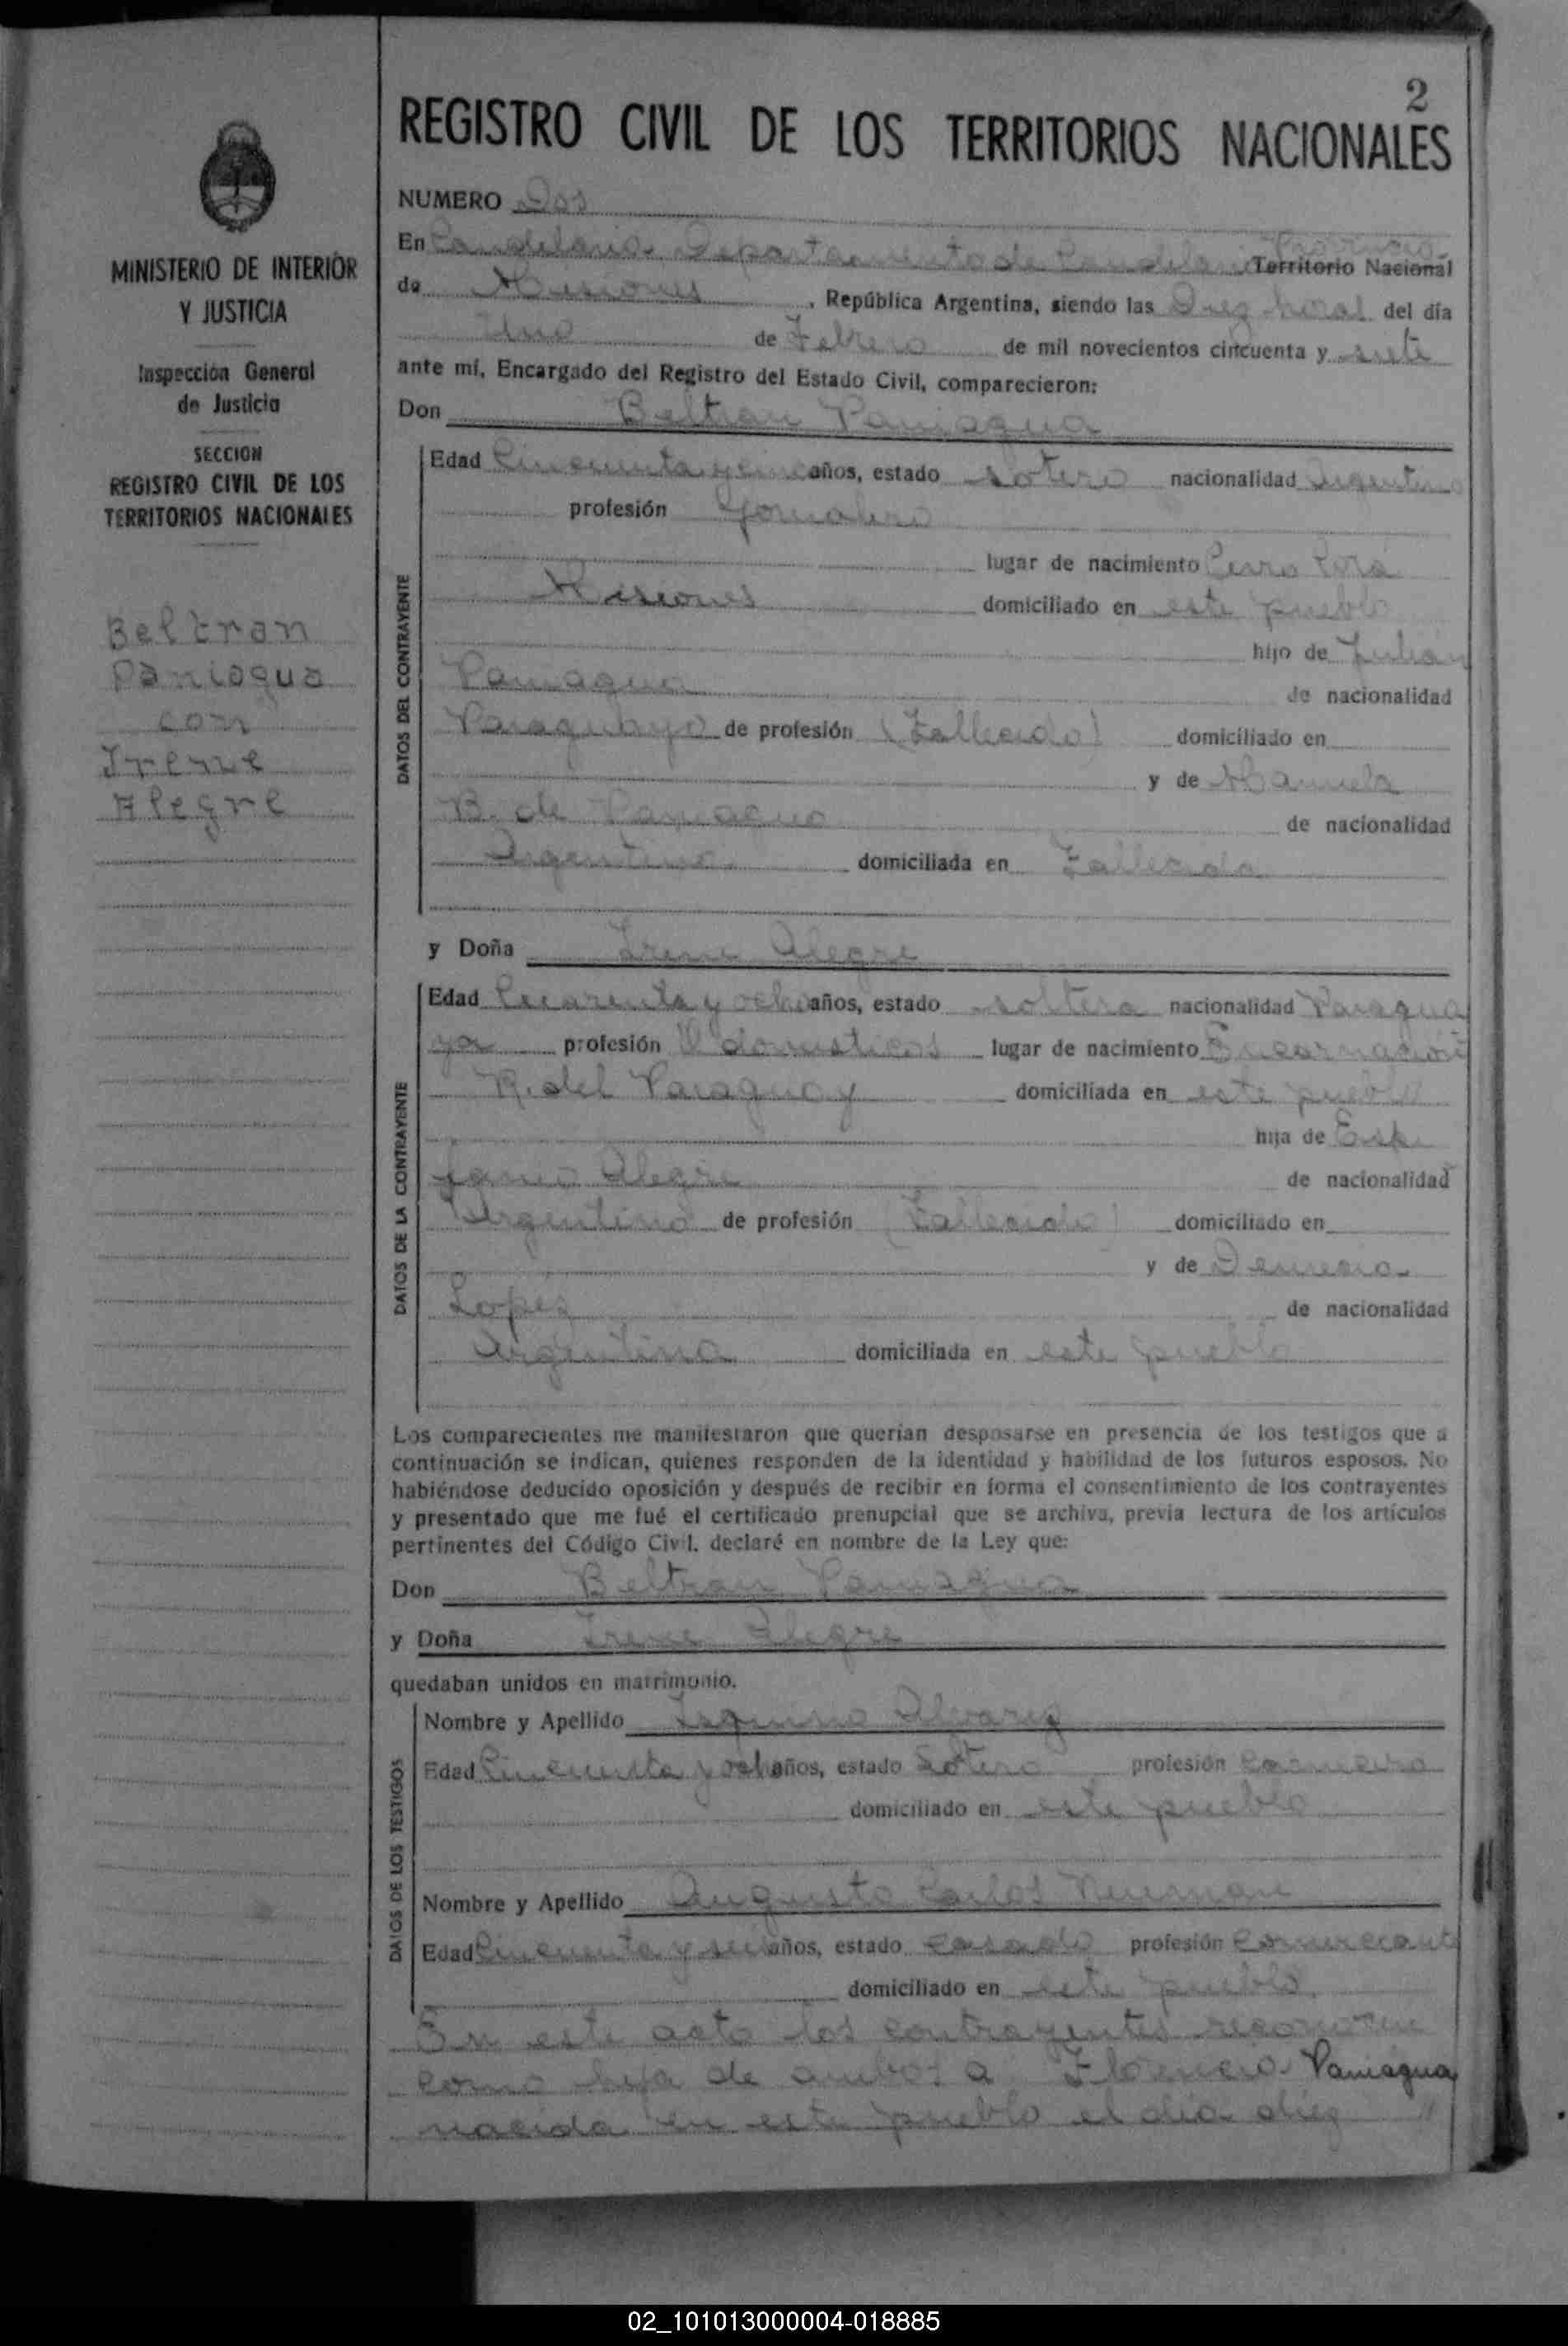 2
REGISTRO CIVIL DE LOS TERRITORIOS NACIONALES
MINISTERIO DE INTERIOR
Y JUSTICIA
Inspección General
de Justicia
SECCION
REGISTRO CIVIL DE LOS
TERRITORIOS NACIONALES
Beltran
Paniagua
con
Irene
Alegre
NUMERO Dos
En Candelaria Departamento de Candelaria Provincia Territorio Nacional
de Misiones, República Argentina, siendo las Diez horas del día
Uno de Febrero de mil novecientos cincuenta y siete
ante mí, Encargado del Registro del Estado Civil, comparecieron:
Don Beltran Paniagua
DATOS DEL CONTRAYENTE
Edad Cincuenta y cinco años, estado soltero nacionalidad Argentino
profesión Jornalero
lugar de nacimiento Cerro Corá
Misiones domiciliado en este pueblo
hijo de Julián
Paniagua de nacionalidad
Paraguayo de profesión (Fallecido) domiciliado en
y de Manuela
B. de Paniagua de nacionalidad
Argentina domiciliada en Fallecida
y Doña Irene Alegre
DATOS DE LA CONTRAYENTE
Edad Cuarenta y ocho años, estado soltera nacionalidad Paragua
ya profesión Q domesticos lugar de nacimiento Encarnación
R. del Paraguay domiciliada en este pueblo
hija de
Alegre de nacionalidad
Argentino de profesión (Fallecido) domiciliado en
y de
Lopez de nacionalidad
Argentina domiciliada en este pueblo
Los comparecientes me manifestaron que querían desposarse en presencia de los testigos que a
continuación se indican, quienes responden de la identidad y habilidad de los futuros esposos. No
habiéndose deducido oposición y después de recibir en forma el consentimiento de los contrayentes
y presentado que me fué el certificado prenupcial que se archiva, previa lectura de los artículos
pertinentes del Código Civil. declaré en nombre de la Ley que:
Don Beltran Paniagua
y Doña Irene Alegre
quedaban unidos en matrimonio.
DATOS DE LOS TESTIGOS
Nombre y Apellido Alvarez
Edad Cincuenta y ocho años, estado Soltero profesión
domiciliado en este pueblo
Nombre y Apellido Augusto Carlos Neuman
Edad Cincuenta y seis años, estado casado profesión comerciante
domiciliado en este pueblo.
En este acto los contrayentes reconocen
como hija de ambos a Florencia Paniagua
nacida en este pueblo el dia diez
02_101013000004-018885